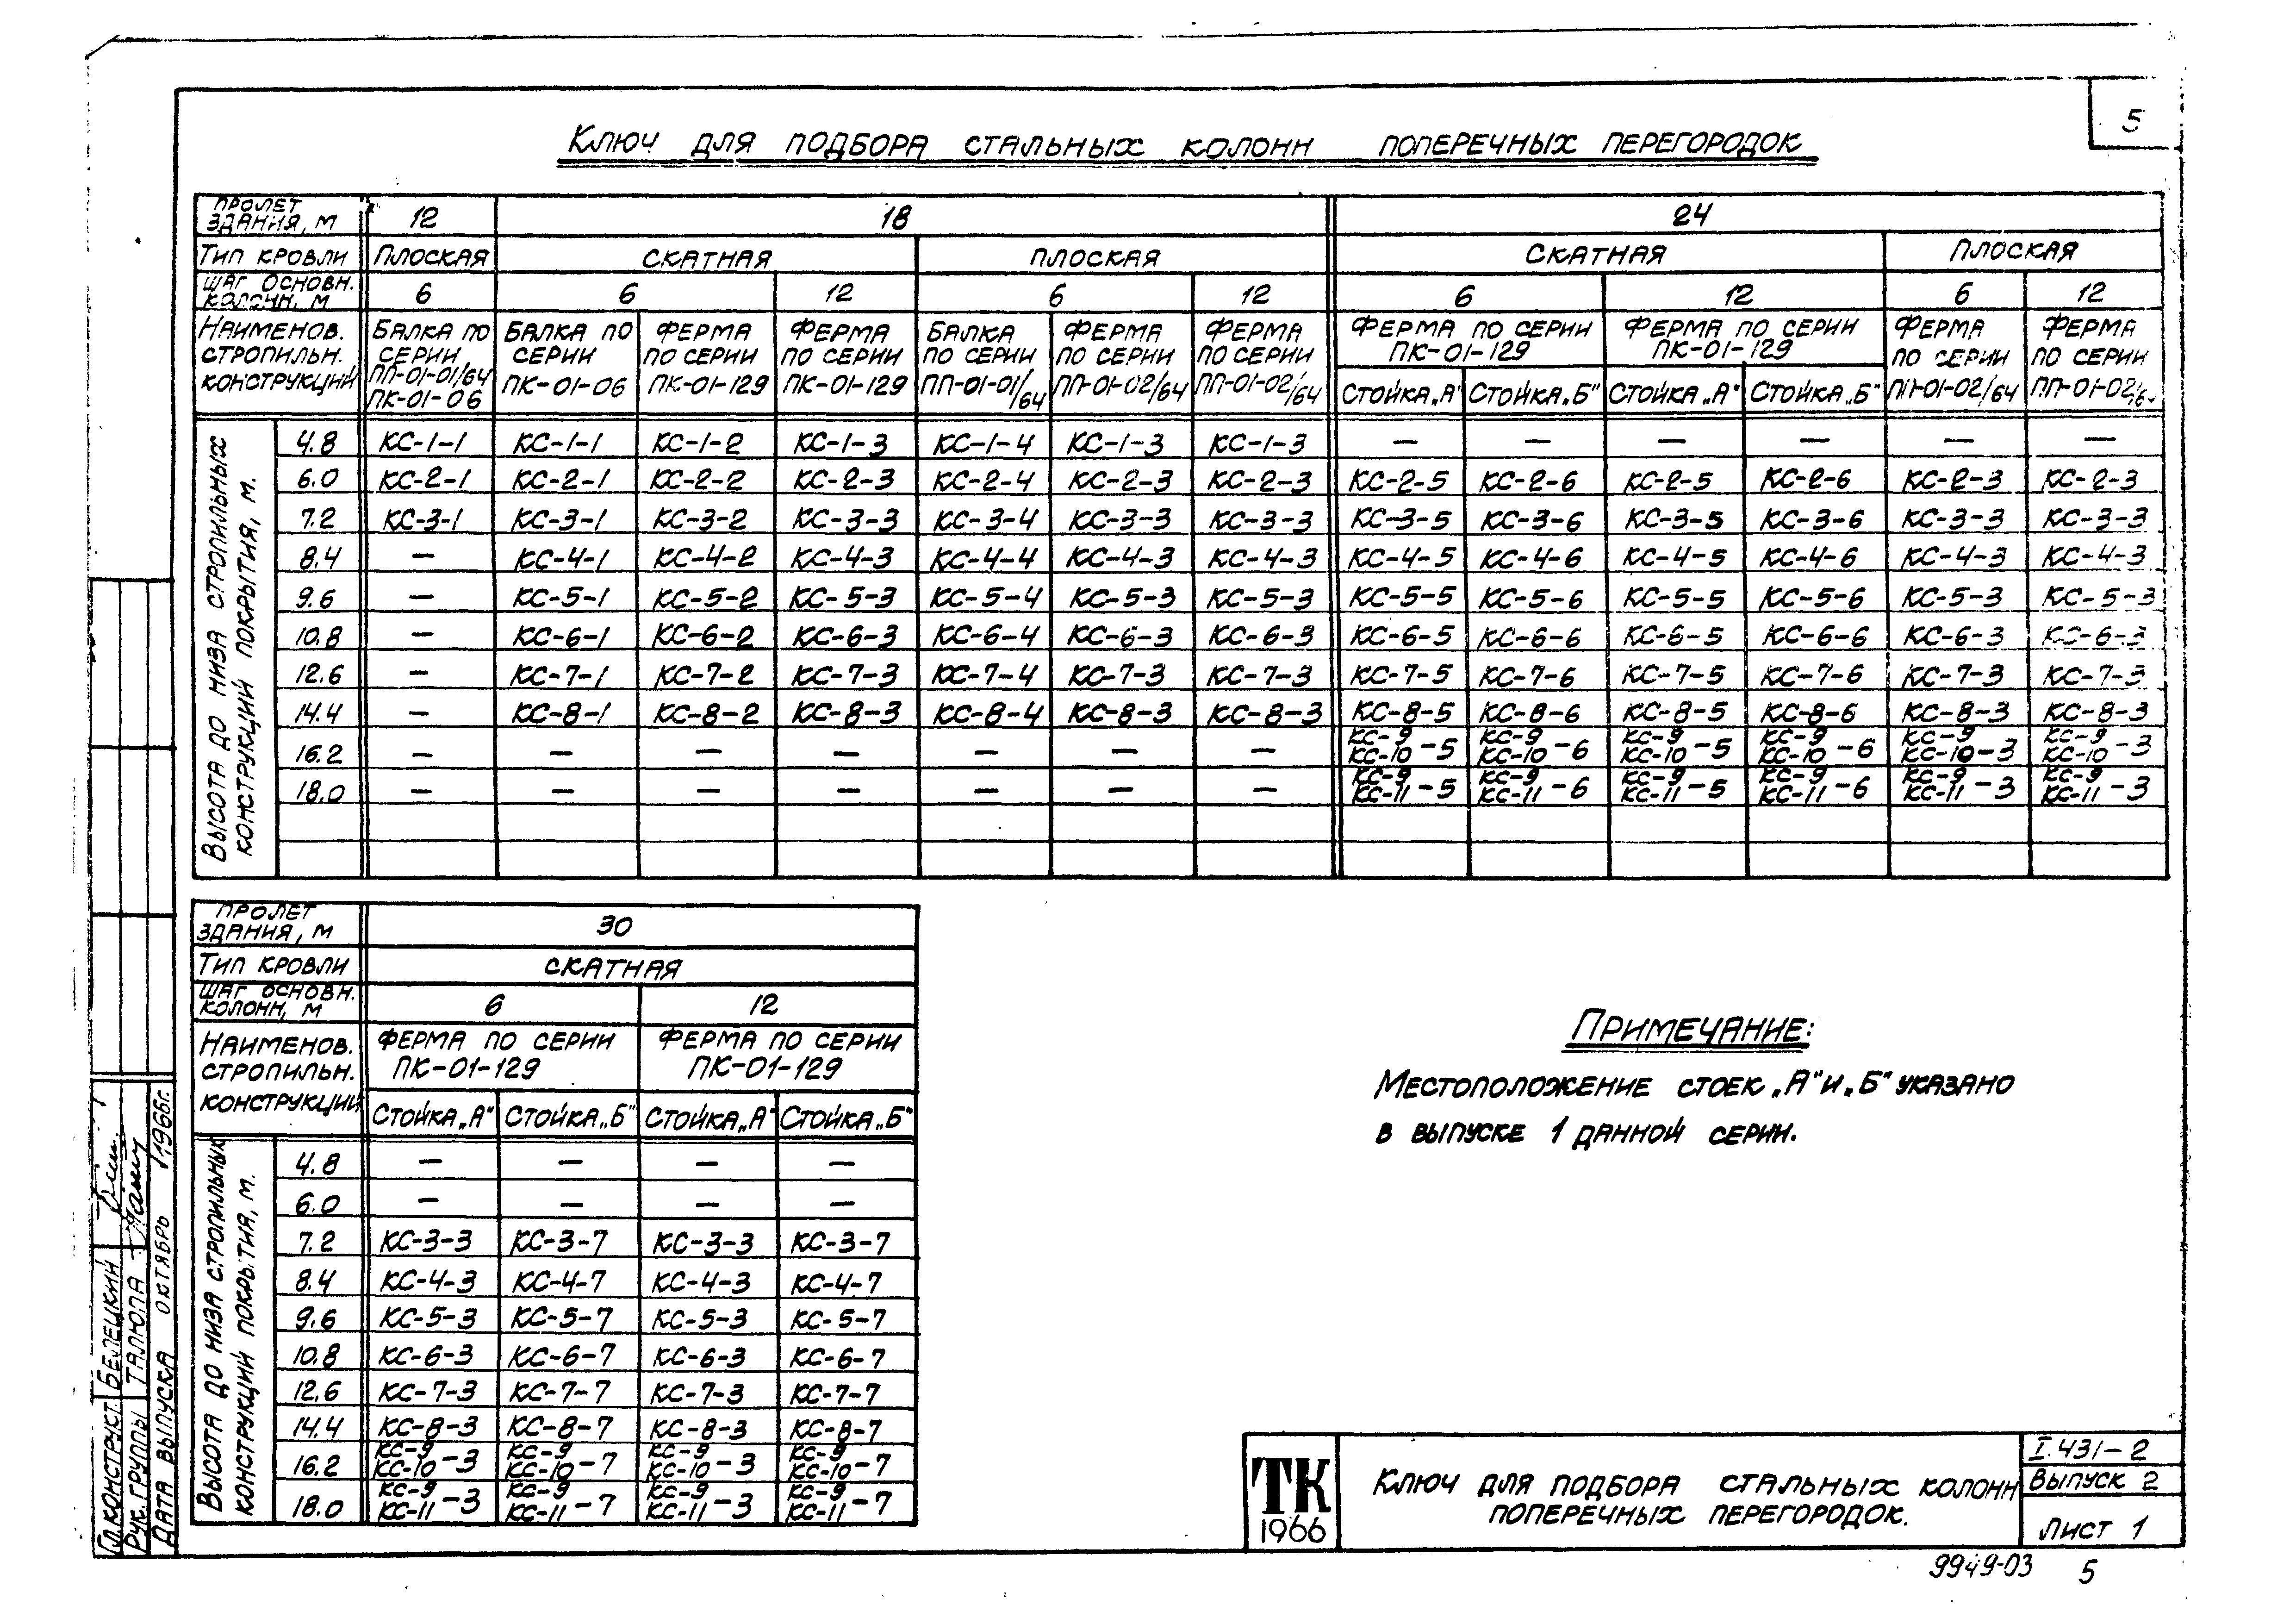 5
Ключ для подбора стальных колонн поперечных перегородок
Пролет здания, м 12 18 24
Тип кровли Плоская Скатная Плоская Скатная Плоская
Шаг основн. колонн, м 6 6 12 6 12 6 12 6 12
Наименов. стропильн. конструкций Балка по серии ПП-01-01/64 ПК-01-06 Балка по серии ПК-01-06 Ферма по серии ПК-01-129 Ферма по серии ПК-01-129 Балка по серии ПП-01-01/64 Ферма по серии ПП-01-02/64 Ферма по серии ПП-01-02/64 Ферма по серии ПК-01-129 Ферма по серии ПК-01-129 Ферма по серии ПП-01-02/64 Ферма по серии
Стойка „А" Стойка „Б" Стойка „А" Стойка „Б"
Высота до низа стропильных конструкций покрытия, м.
4.8 КС-1-1 КС-1-1 КС-1-2 КС-1-3 КС-1-4 КС-1-3 КС-1-3 — — — — — —
6.0 КС-2-1 КС-2-1 КС-2-2 КС-2-3 КС-2-4 КС-2-3 КС-2-3 КС-2-5 КС-2-6 КС-2-5 КС-2-6 КС-2-3 КС-2-3
7.2 КС-3-1 КС-3-1 КС-3-2 КС-3-3 КС-3-4 КС-3-3 КС-3-3 КС-3-5 КС-3-6 КС-3-5 КС-3-6 КС-3-3 КС-3-3
8.4 — КС-4-1 КС-4-2 КС-4-3 КС-4-4 КС-4-3 КС-4-3 КС-4-5 КС-4-6 КС-4-5 КС-4-6 КС-4-3 КС-4-3
9.6 — КС-5-1 КС-5-2 КС-5-3 КС-5-4 КС-5-3 КС-5-3 КС-5-5 КС-5-6 КС-5-5 КС-5-6 КС-5-3 КС-5-3
10.8 — КС-6-1 КС-6-2 КС-6-3 КС-6-4 КС-6-3 КС-6-3 КС-6-5 КС-6-6 КС-6-5 КС-6-6 КС-6-3 КС-6-3
12.6 — КС-7-1 КС-7-2 КС-7-3 КС-7-4 КС-7-3 КС-7-3 КС-7-5 КС-7-6 КС-7-5 КС-7-6 КС-7-3 КС-7-3
14.4 — КС-8-1 КС-8-2 КС-8-3 КС-8-4 КС-8-3 КС-8-3 КС-8-5 КС-8-6 КС-8-5 КС-8-6 КС-8-3 КС-8-3
КС-9 КС-9 КС-9 КС-9 КС-9 КС-9
16.2 — — — — — — — КС-10-5 КС-10-6 КС-10-5 КС-10-6 КС-10-3 КС-10-3
КС-9 КС-9 КС-9 КС-9 КС-9 КС-9
18.0 — — — — — — — КС-11-5 КС-11-6 КС-11-5 КС-11-6 КС-11-3 КС-11-3
Пролет здания, м 30
Тип кровли Скатная
Шаг основн. колонн, м 6 12
Наименов. стропильн. конструкций Ферма по серии ПК-01-129 Ферма по серии ПК-01-129
Стойка „А" Стойка „Б" Стойка „А" Стойка „Б"
Высота до низа стропильных конструкций покрытия, м.
4.8 — — — —
6.0 — — — —
7.2 КС-3-3 КС-3-7 КС-3-3 КС-3-7
8.4 КС-4-3 КС-4-7 КС-4-3 КС-4-7
9.6 КС-5-3 КС-5-7 КС-5-3 КС-5-7
10.8 КС-6-3 КС-6-7 КС-6-3 КС-6-7
12.6 КС-7-3 КС-7-7 КС-7-3 КС-7-7
14.4 КС-8-3 КС-8-7 КС-8-3 КС-8-7
КС-9 КС-9 КС-9 КС-9
16.2 КС-10-3 КС-10-7 КС-10-3 КС-10-7
КС-9 КС-9 КС-9 КС-9
18.0 КС-11-3 КС-11-7 КС-11-3 КС-11-7
Примечание:
Местоположение стоек „А" и „Б" указано
в выпуске 1 данной серии.
Гл. конструкт. Белецкий
Рук. группы Талюпа
Дата выпуска октябрь 1966г.
ТК
1966
Ключ для подбора стальных колонн
поперечных перегородок.
I.431-2
Выпуск 2
Лист 1
9949-03 5